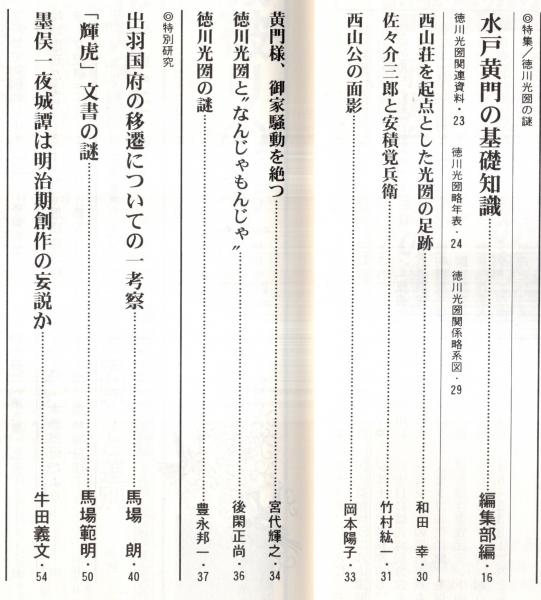 ◎特集／徳川光圀の謎
水戸黄門の基礎知識……編集部編・16
徳川光圀関連資料・23　徳川光圀略年表・24　徳川光圀関係略系図・29
西山荘を起点とした光圀の足跡……和田　幸・30
佐々介三郎と安積覚兵衛……竹村紘一・31
西山公の面影……岡本陽子・33
黄門様、御家騒動を絶つ……宮代輝之・34
徳川光圀と〝なんじゃもんじゃ〟……後閑正尚・36
徳川光圀の謎……豊永邦一・37
◎特別研究
出羽国府の移遷についての一考察……馬場　朗・40
「輝虎」文書の謎……馬場範明・50
墨俣一夜城譚は明治期創作の妄説か……牛田義文・54